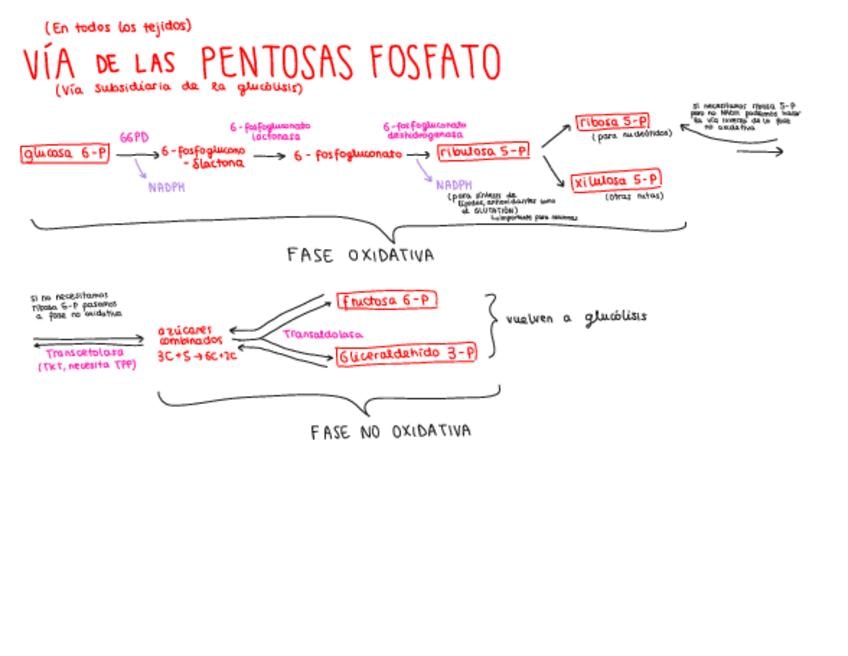 (En todos los tejidos)
VÍA DE LAS PENTOSAS FOSFATO
(Vía subsidiaria de la glucólisis)
glucosa 6-P
G6PD
NADPH
6-fosfoglucono
-δlactona
6-fosfogluconato
lactonasa
6-fosfogluconato
6-fosfogluconato
deshidrogenasa
NADPH
(para síntesis de
lípidos, antioxidantes como
el GLUTATIÓN)
importante para
ribulosa 5-P
ribosa 5-P
(para nucleótidos)
xilulosa 5-P
(otras rutas)
si necesitamos ribosa 5-P
pero no NADPH podemos hacer
la vía inversa de la fase
no oxidativa
FASE OXIDATIVA
si no necesitamos
ribosa 5-P pasamos
a fase no oxidativa
Transcetolasa
(TKT, necesita TPP)
azúcares
combinados
3C+5→6C+2C
Transaldolasa
fructosa 6-P
Gliceraldehído 3-P
vuelven a glucólisis
FASE NO OXIDATIVA